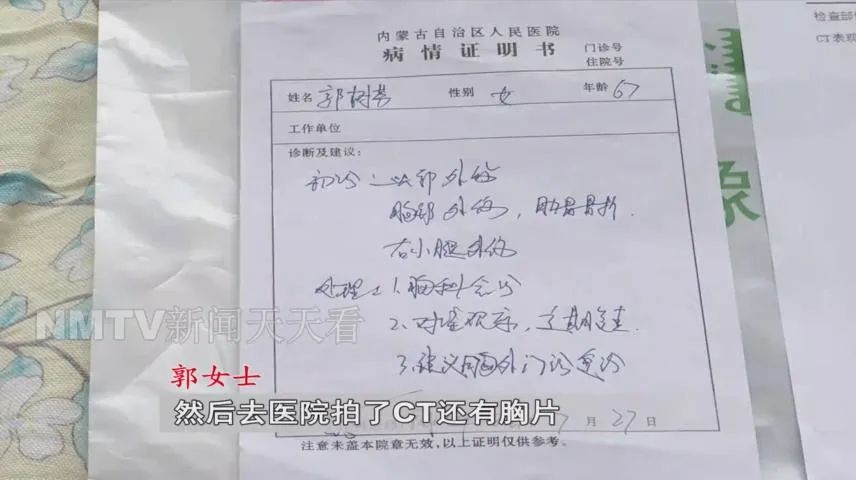 内蒙古自治区人民医院
病情证明书
门诊号
住院号
姓名 郭树芳 性别 女 年龄 67
工作单位
诊断及建议：
初诊：头部外伤
胸部外伤，肋骨骨折.
右小腿外伤
处理：1.胸科会诊
2、对症观察，定期复查.
3.建议胸外门诊复诊
NMTV新闻天天看
郭女士
然后去医院拍了CT还有胸片
月27日
注意未盖本院章无效，以上证明仅供参考。
检查部
CT表现